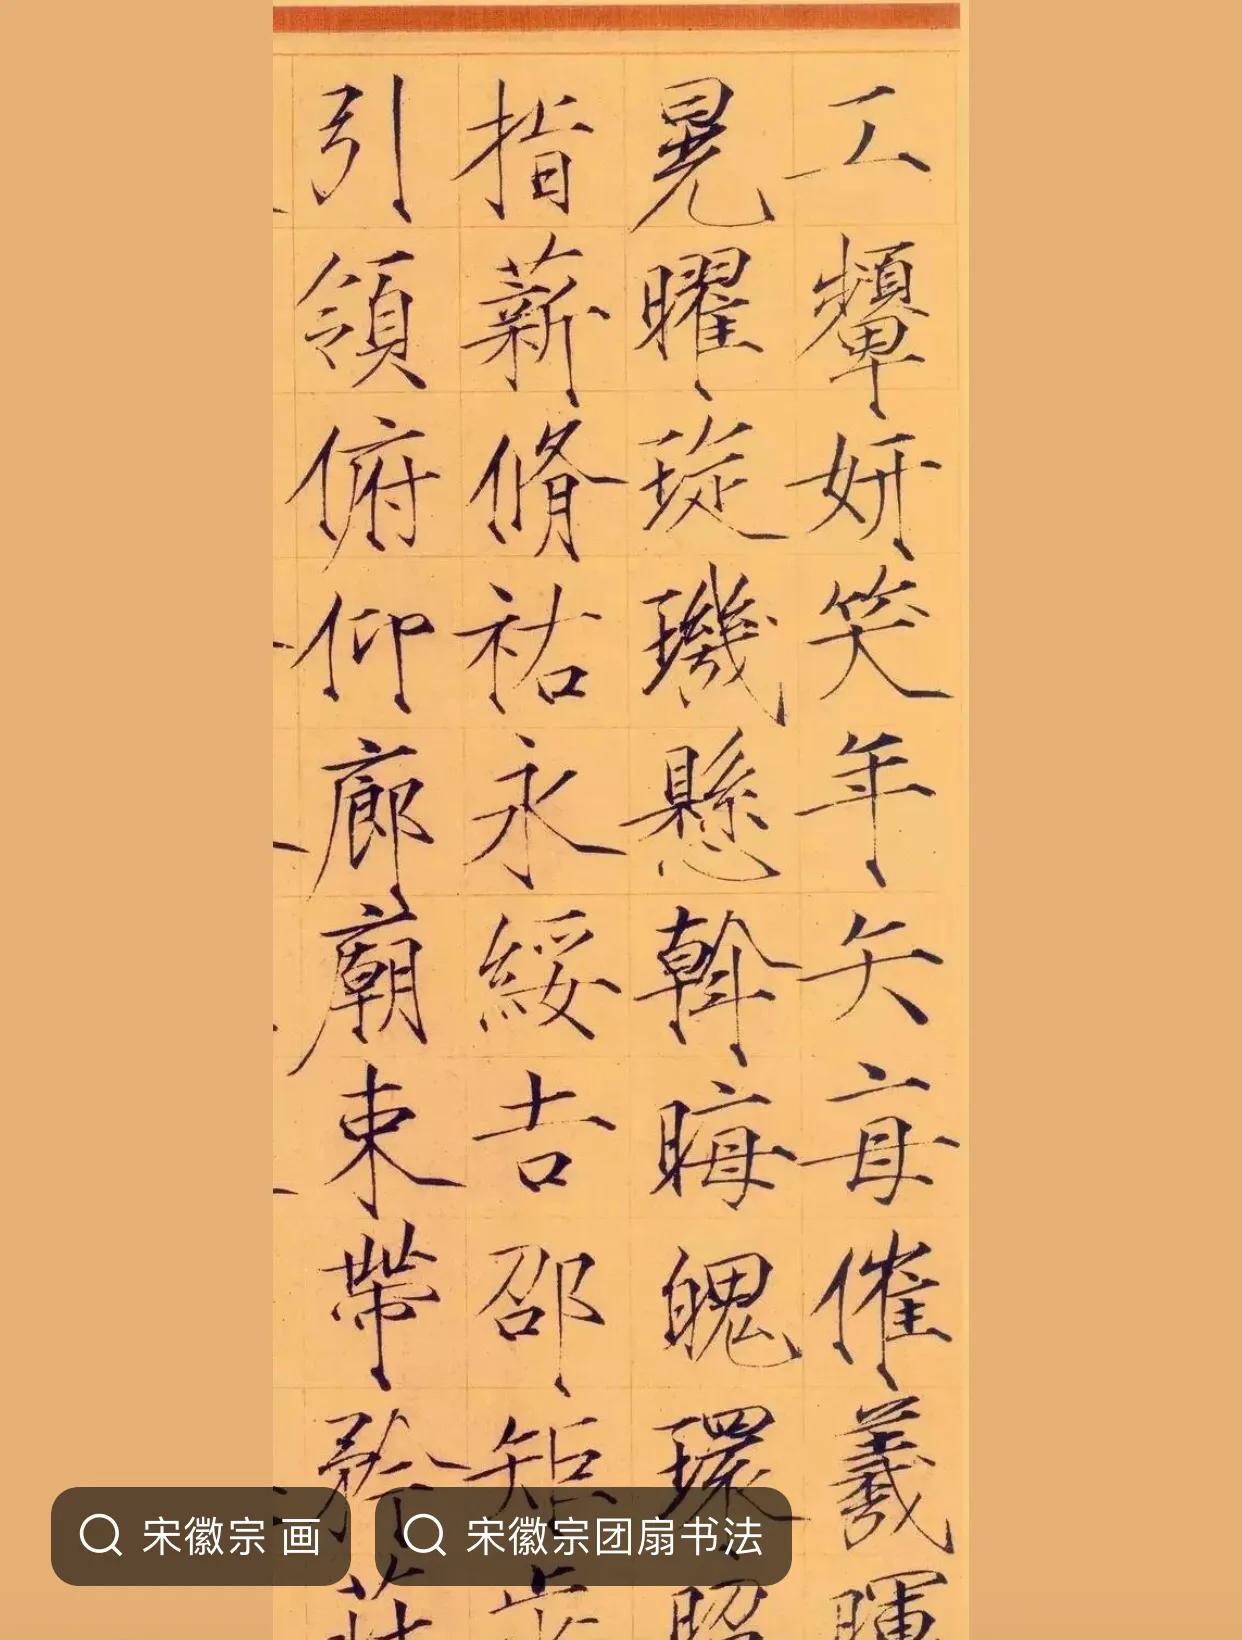 工顰妍笑年矢每催羲暉
晃曜琁璣懸斡晦魄環照
指薪脩祐永綏吉邵矩步
引領俯仰廊廟束帶矜莊
宋徽宗 画
宋徽宗团扇书法